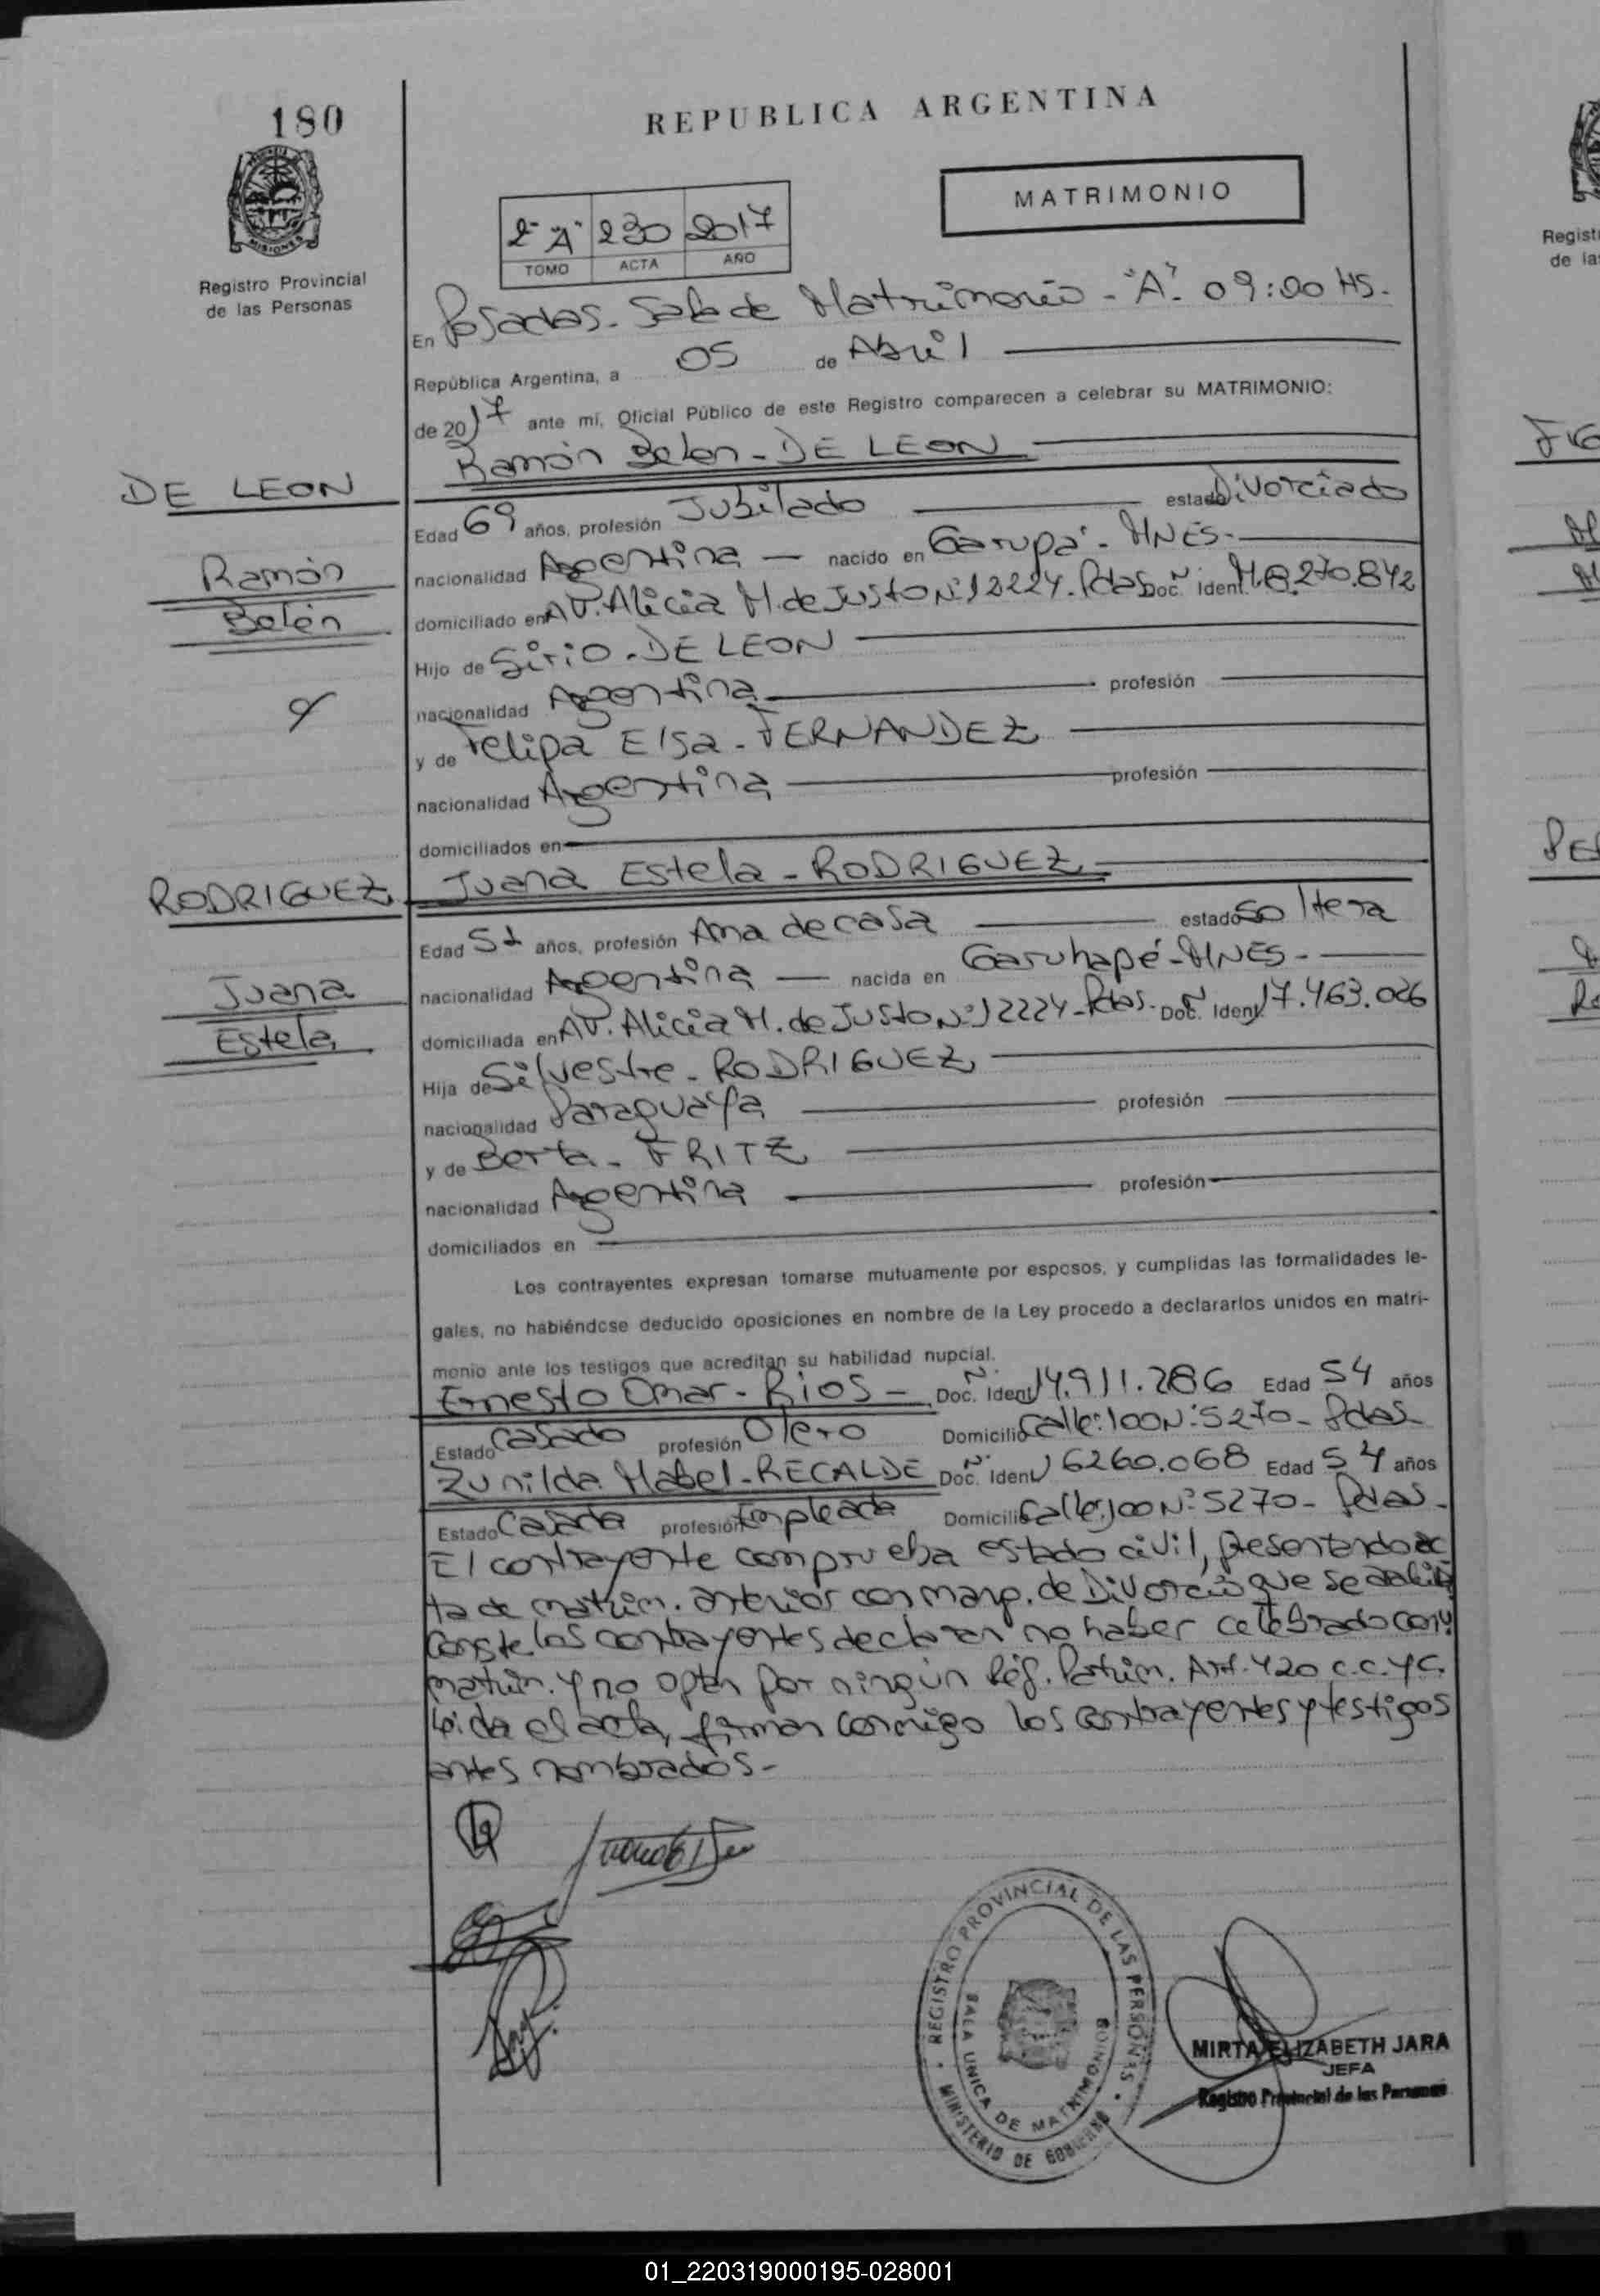 180
REPUBLICA ARGENTINA
MATRIMONIO
2º "A" 230 2017
TOMO ACTA AÑO
Registro Provincial
de las Personas
En Posadas. Sala de Matrimonio - "A". 09:00 HS.
República Argentina, a 05 de Abril
de 2017 ante mí, Oficial Público de este Registro comparecen a celebrar su MATRIMONIO:
Ramón Belen - DE LEON
DE LEON
Ramón
Belén
Edad 69 años, profesión Jubilado estado Divorciado
nacionalidad Argentina - nacido en Garupá - MNES -
domiciliado en AV. Alicia M. de Justo Nº 12224. Pdas Doc. Ident. M.8.270.842
Hijo de Sirio - DE LEON
nacionalidad Argentina profesión
y de Felipa Elsa - FERNANDEZ
nacionalidad Argentina profesión
domiciliados en
RODRIGUEZ
Juana
Estela
Juana Estela - RODRIGUEZ
Edad 51 años, profesión Ama de casa estado Soltera
nacionalidad Argentina - nacida en Garuhapé - MNES -
domiciliada en AV. Alicia M. de Justo Nº 12224 - Pdas. Doc. Ident. 17.463.026
Hija de Silvestre - RODRIGUEZ
nacionalidad Paraguaya profesión
y de Berta - FRITZ
nacionalidad Argentina profesión
domiciliados en
Los contrayentes expresan tomarse mutuamente por esposos, y cumplidas las formalidades le-
gales, no habiéndose deducido oposiciones en nombre de la Ley procedo a declararlos unidos en matri-
monio ante los testigos que acreditan su habilidad nupcial.
Ernesto Omar - Rios - Doc. Ident. Nº 14.911.286 Edad 54 años
Estado Casado profesión Domicilio Calle: 100 Nº 5270 - Pdas
Zunilda Mabel - RECALDE Doc. Ident. Nº 16260.068 Edad 54 años
Estado Casada profesión Empleada Domicilio Calle: 100 Nº 5270 - Pdas -
El contrayente comprueba estado civil, presentando ac
ta de matrim. anterior con marg. de Divorcio que se
Conste los contrayentes declaran no haber celebrado conv.
matrim. y no optan por ningún Rég. Patrim. Art. 420 c.c.y C.
Leída el acta, firman conmigo los contrayentes y testigos
antes nombrados -
REGISTRO PROVINCIAL DE LAS PERSONAS
SALA UNICA DE MATRIMONIOS
MINISTERIO DE GOBIERNO
MIRTA ELIZABETH JARA
JEFA
Registro Provincial de las Personas
01_220319000195-028001